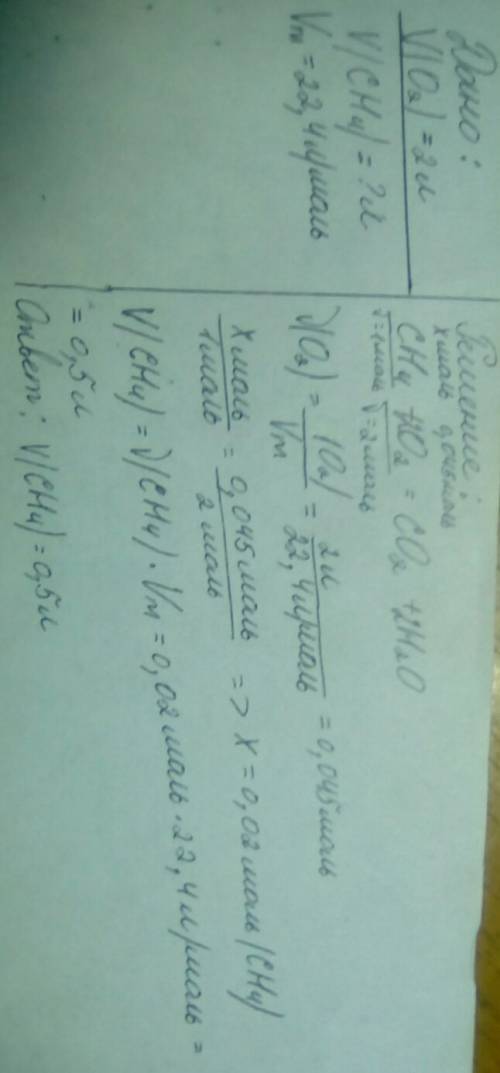 Дано:
V(O₂) = 2 л
V(CH₄) = ? л
Vm = 22,4 л/моль
Решение:
x моль 0,045 моль
CH₄ + 2O₂ = CO₂ + 2H₂O
ν=1 моль ν=2 моль
ν(O₂) = (O₂) / Vm = 2 л / 22,4 л/моль = 0,045 моль
x моль / 1 моль = 0,045 моль / 2 моль => x = 0,02 моль (CH₄)
V(CH₄) = ν(CH₄) · Vm = 0,02 моль · 22,4 л/моль =
= 0,5 л
Ответ: V(CH₄) = 0,5 л